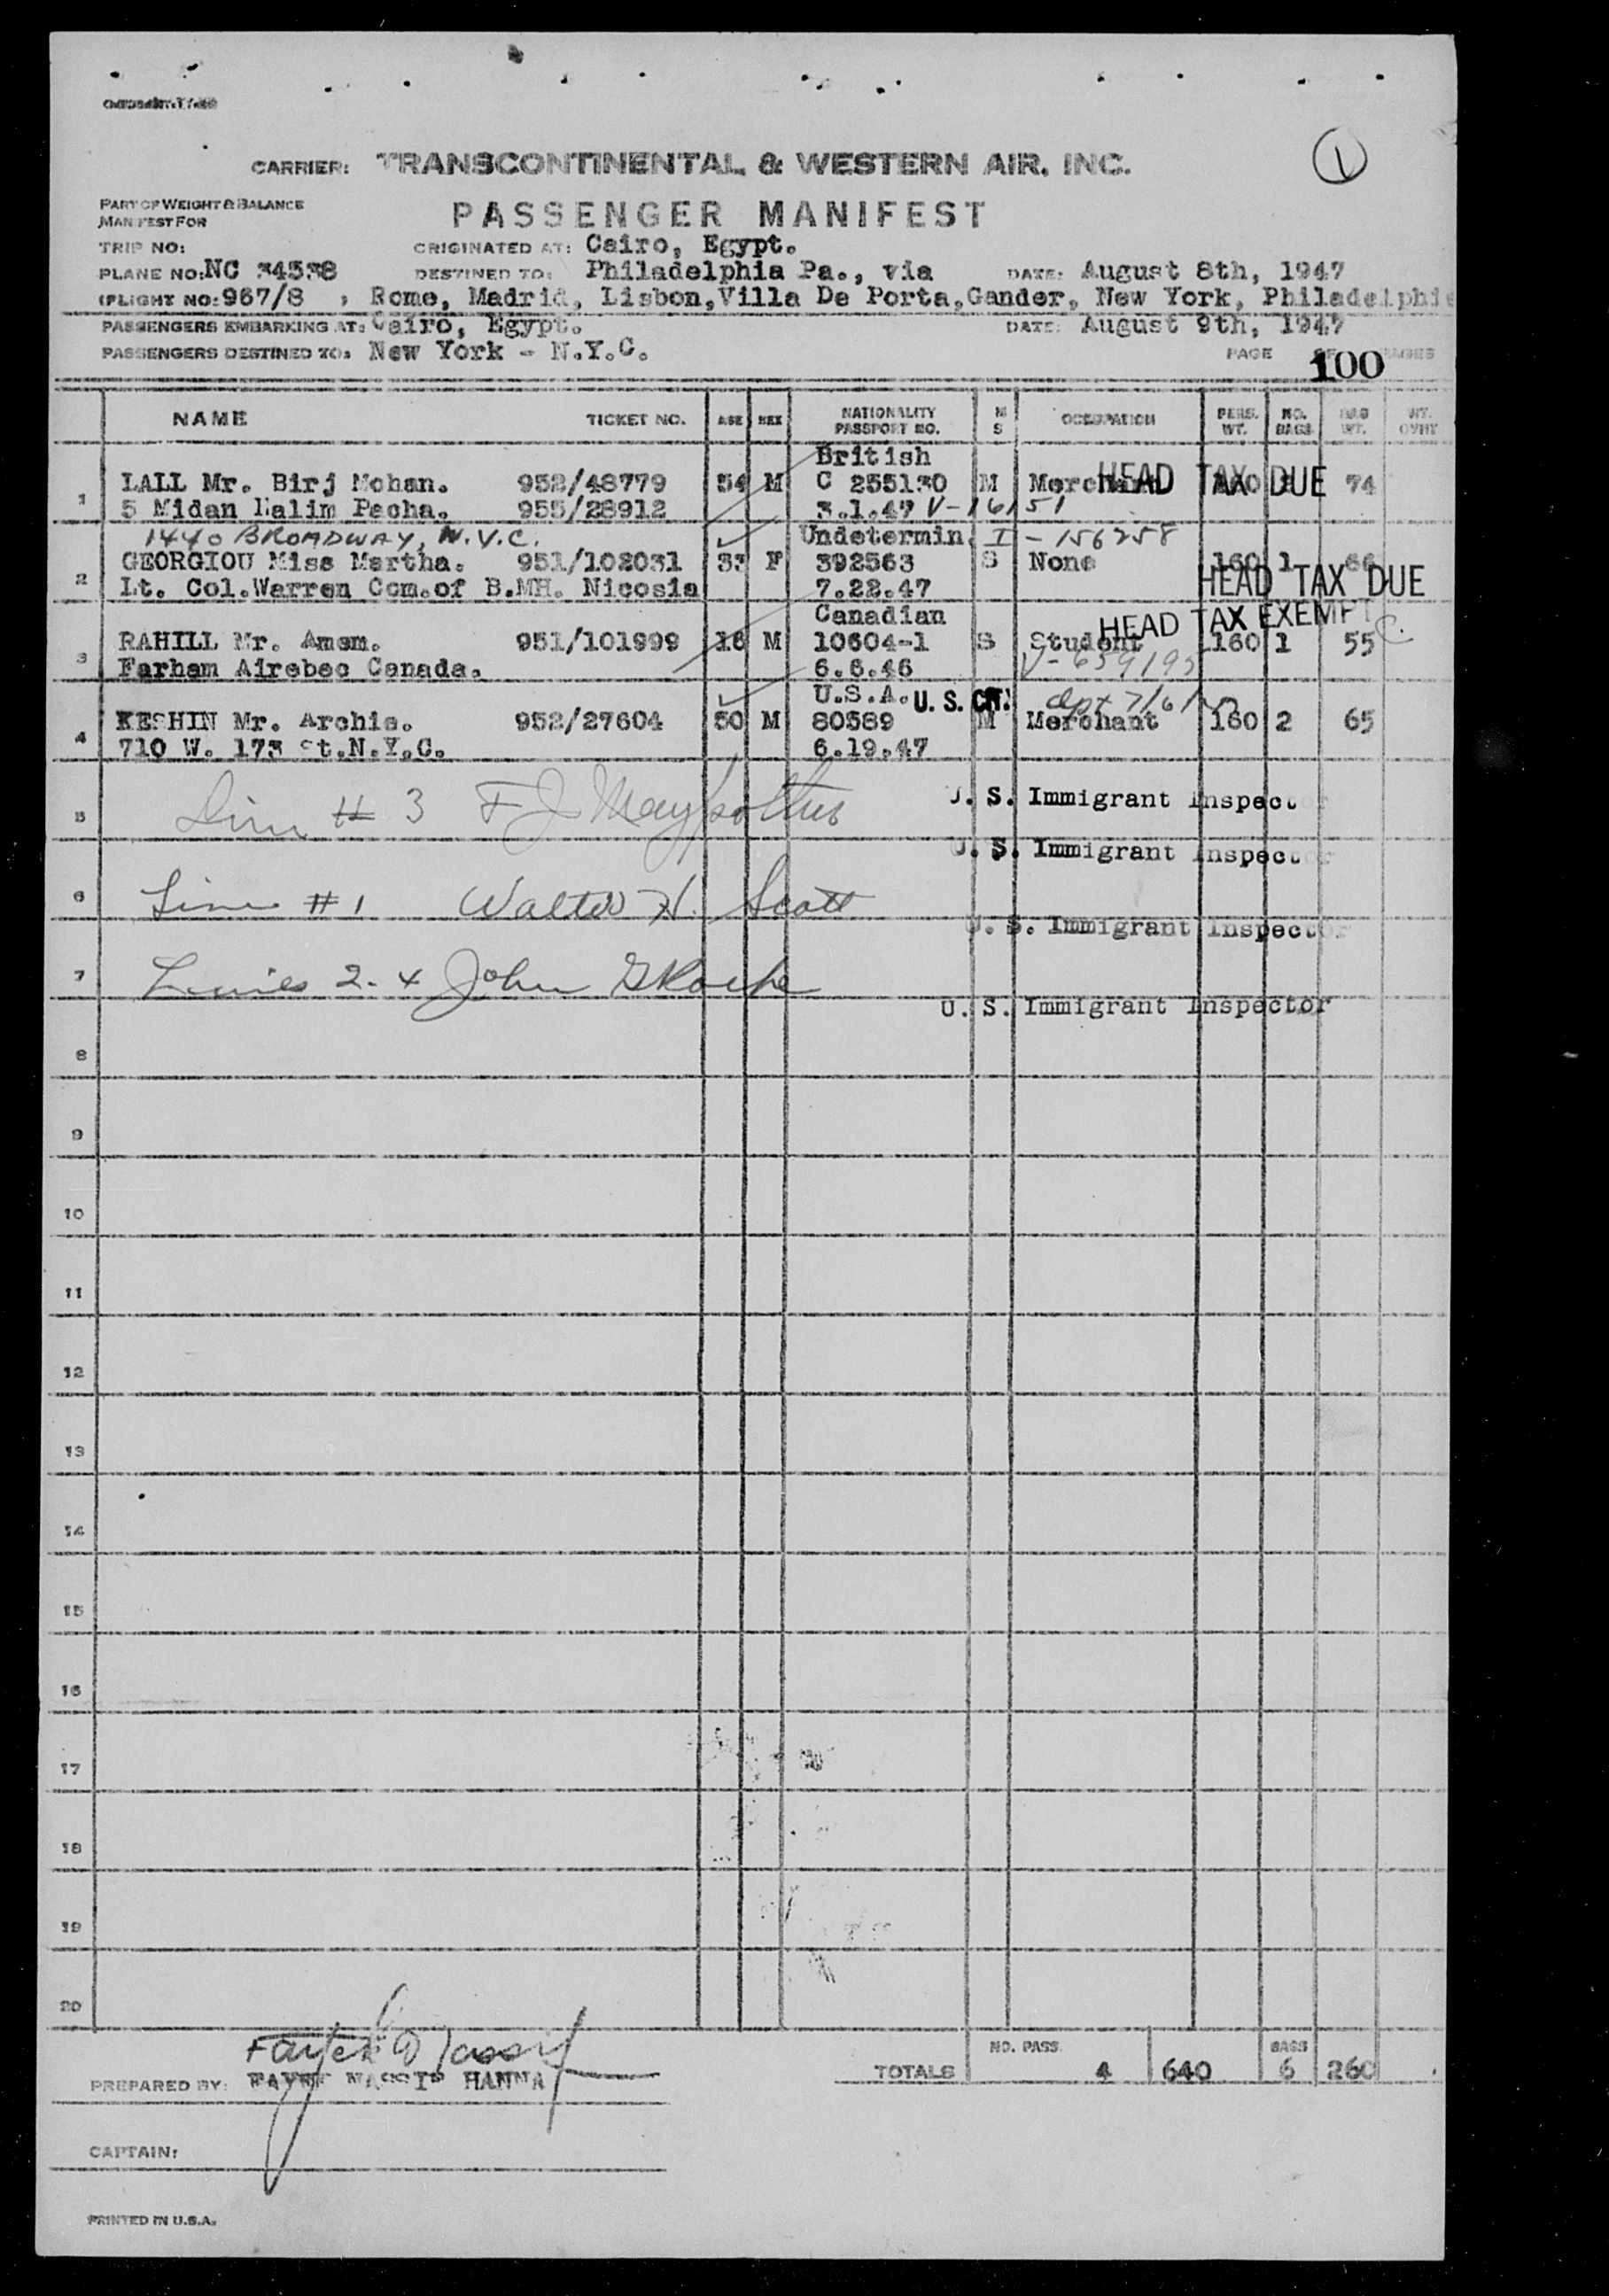 CARRIER: TRANSCONTINENTAL & WESTERN AIR, INC.
1
PART OF WEIGHT & BALANCE
MANIFEST FOR
PASSENGER MANIFEST
TRIP NO: ORIGINATED AT: Cairo, Egypt.
PLANE NO: NC 34538 DESTINED TO: Philadelphia Pa., via DATE: August 8th, 1947
(FLIGHT NO: 967/8 , Rome, Madrid, Lisbon, Villa De Porta, Gander, New York, Philadelphi
PASSENGERS EMBARKING AT: Cairo, Egypt. DATE: August 9th, 1947
PASSENGERS DESTINED TO: New York - N.Y.C. PAGE OF PAGES
100
NAME TICKET NO. AGE SEX NATIONALITY PASSPORT NO. M S OCCUPATION PERS. WT. NO. BAGS BAG WT. WT. OVHT
British
1 LALL Mr. Birj Mohan. 952/48779 54 M C 255130 M HEAD TAX DUE 74
5 Midan Halim Pacha. 955/28912 3.1.47 V-16151
1440 BROADWAY, N.Y.C. Undetermin. I-156258
2 GEORGIOU Miss Martha. 951/102031 33 F 392563 S None 160 1 66
Lt. Col. Warren Com. of B.MH. Nicosia 7.22.47 HEAD TAX DUE
Canadian HEAD TAX EXEMPT
3 RAHILL Mr. Amem. 951/101999 18 M 10604-1 S Student 160 1 55
Farham Airebec Canada. 6.6.46
U.S.A. U. S. CIT.
4 KESHIN Mr. Archie. 952/27604 50 M 80589 M Merchant 160 2 65
710 W. 173 St. N.Y.C. 6.19.47
5 Line # 3 U. S. Immigrant Inspector
U. S. Immigrant Inspector
6 Line #1 Walter H. Scott
U. S. Immigrant Inspector
7 Lines 2-4 John
U. S. Immigrant Inspector
8
9
10
11
12
13
14
15
16
17
18
19
20
PREPARED BY: FAYEK NASSIF HANNA
TOTALS NO. PASS. 4 640 BAGS 6 260
CAPTAIN:
PRINTED IN U.S.A.